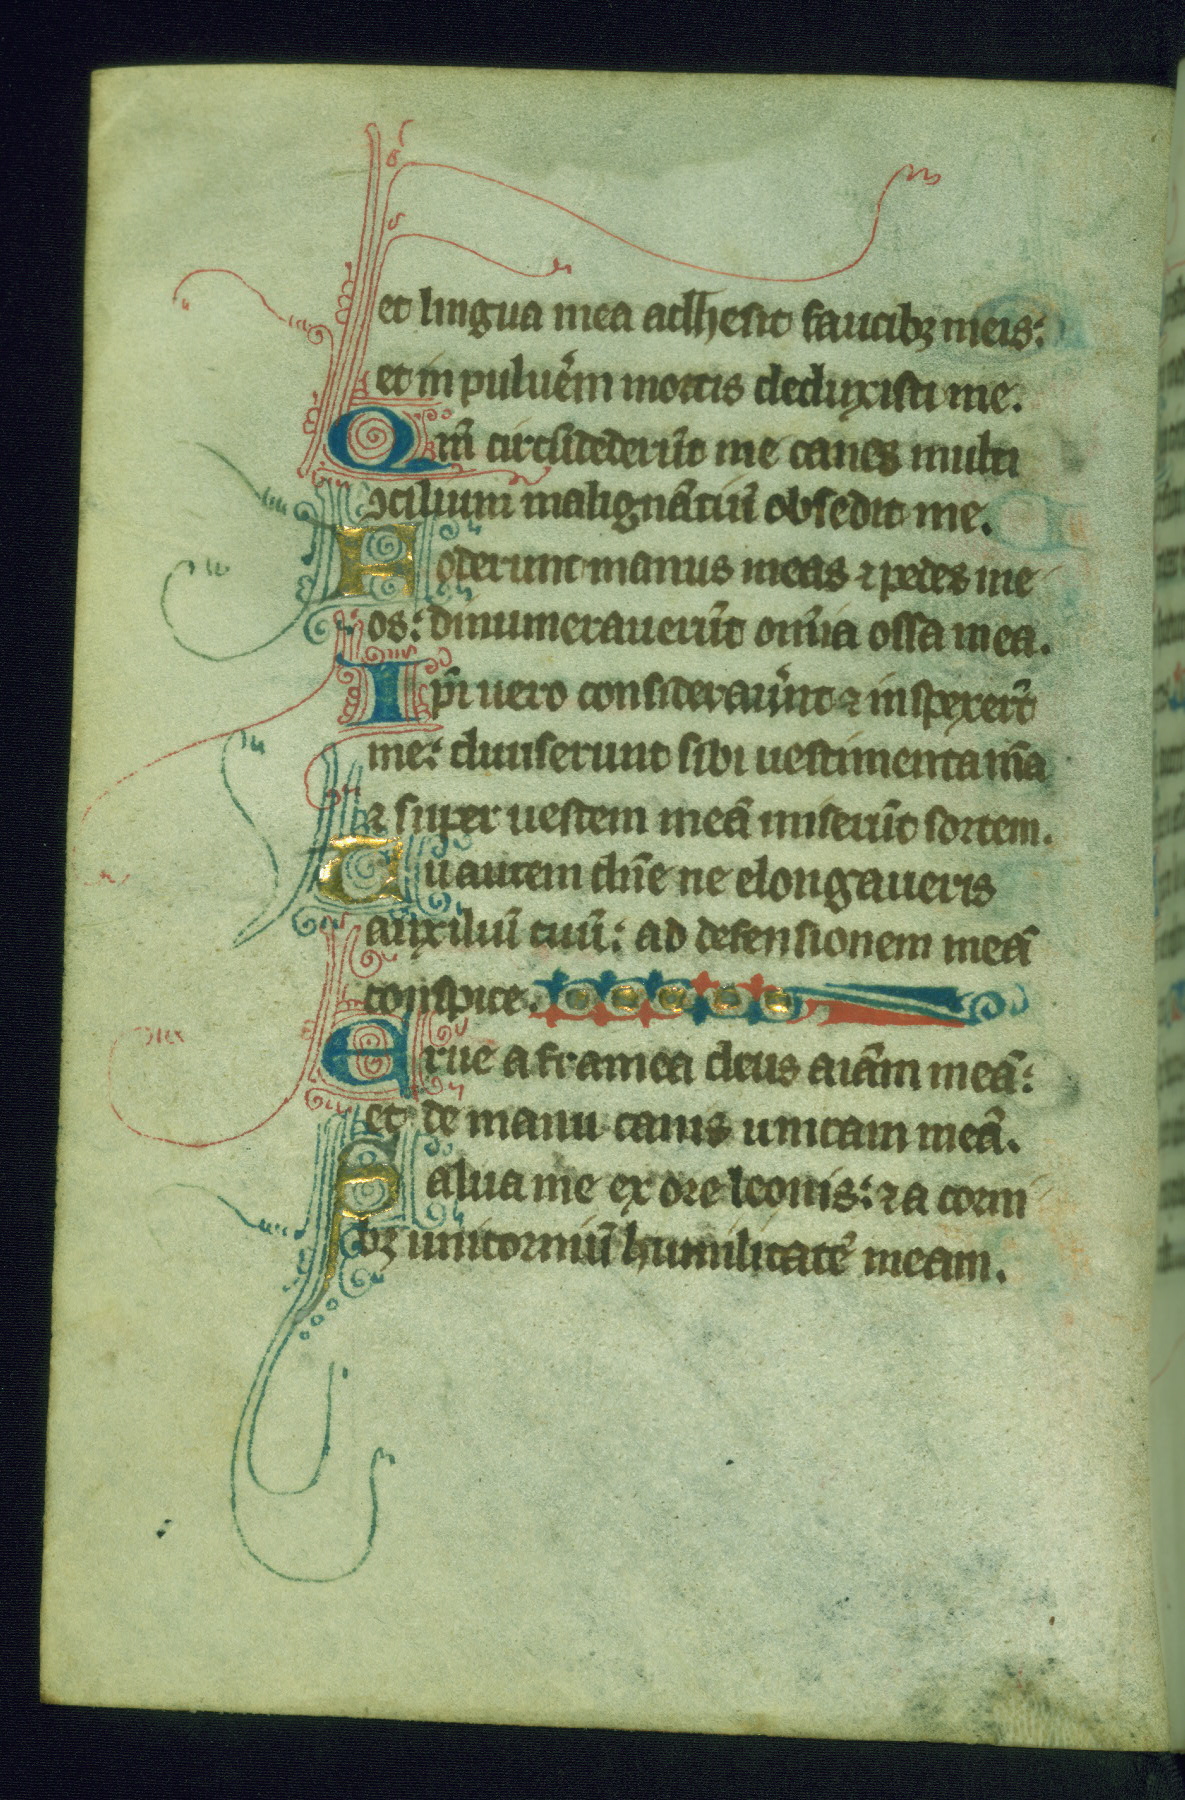 et lingua mea adhesit faucibꝫ meis:
et in puluẽm mortis deduxisti me.
Qm̃ circũdederũt me canes multi
ꝯcilium malignãtiũ obsedit me.
Foderunt manus meas ⁊ pedes me
os: dinumerauerũt om̃ia ossa mea.
Ip̃i uero considerauẽnt ⁊ inspexerũt
me: diuiserunt sibi uestimenta m̃a
⁊ super uestem meã miserũt sortem.
Tu autem dñe ne elongaueris
auxiliũ tuũ: ad defensionem meã
conspice.
Erue a framea deus aiãm meã:
et de manu canis unicam meã.
Salua me ex ore leonis: ⁊ a corni
bꝫ unicorniũ humilitatẽ meam.